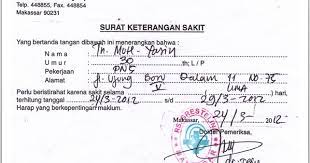 Telp. 448855, Fax. 448854
Makassar 90231
SURAT KETERANGAN SAKIT
Yang bertanda tangan dibawah ini menerangkan bahwa :
Nama : In. Moh. Yasin
Umur : 30 th; L / P
Pekerjaan : PNS
Alamat : Jl. Ujung Bori Dalam 11 No 75
Perlu beristirahat karena sakit selama V LIMA
terhitung tanggal 24/3-2012 s/d 29/3-2012
Harap yang berkepentingan maklum.
Makassar, 24/3-2012
Dokter Pemeriksa,